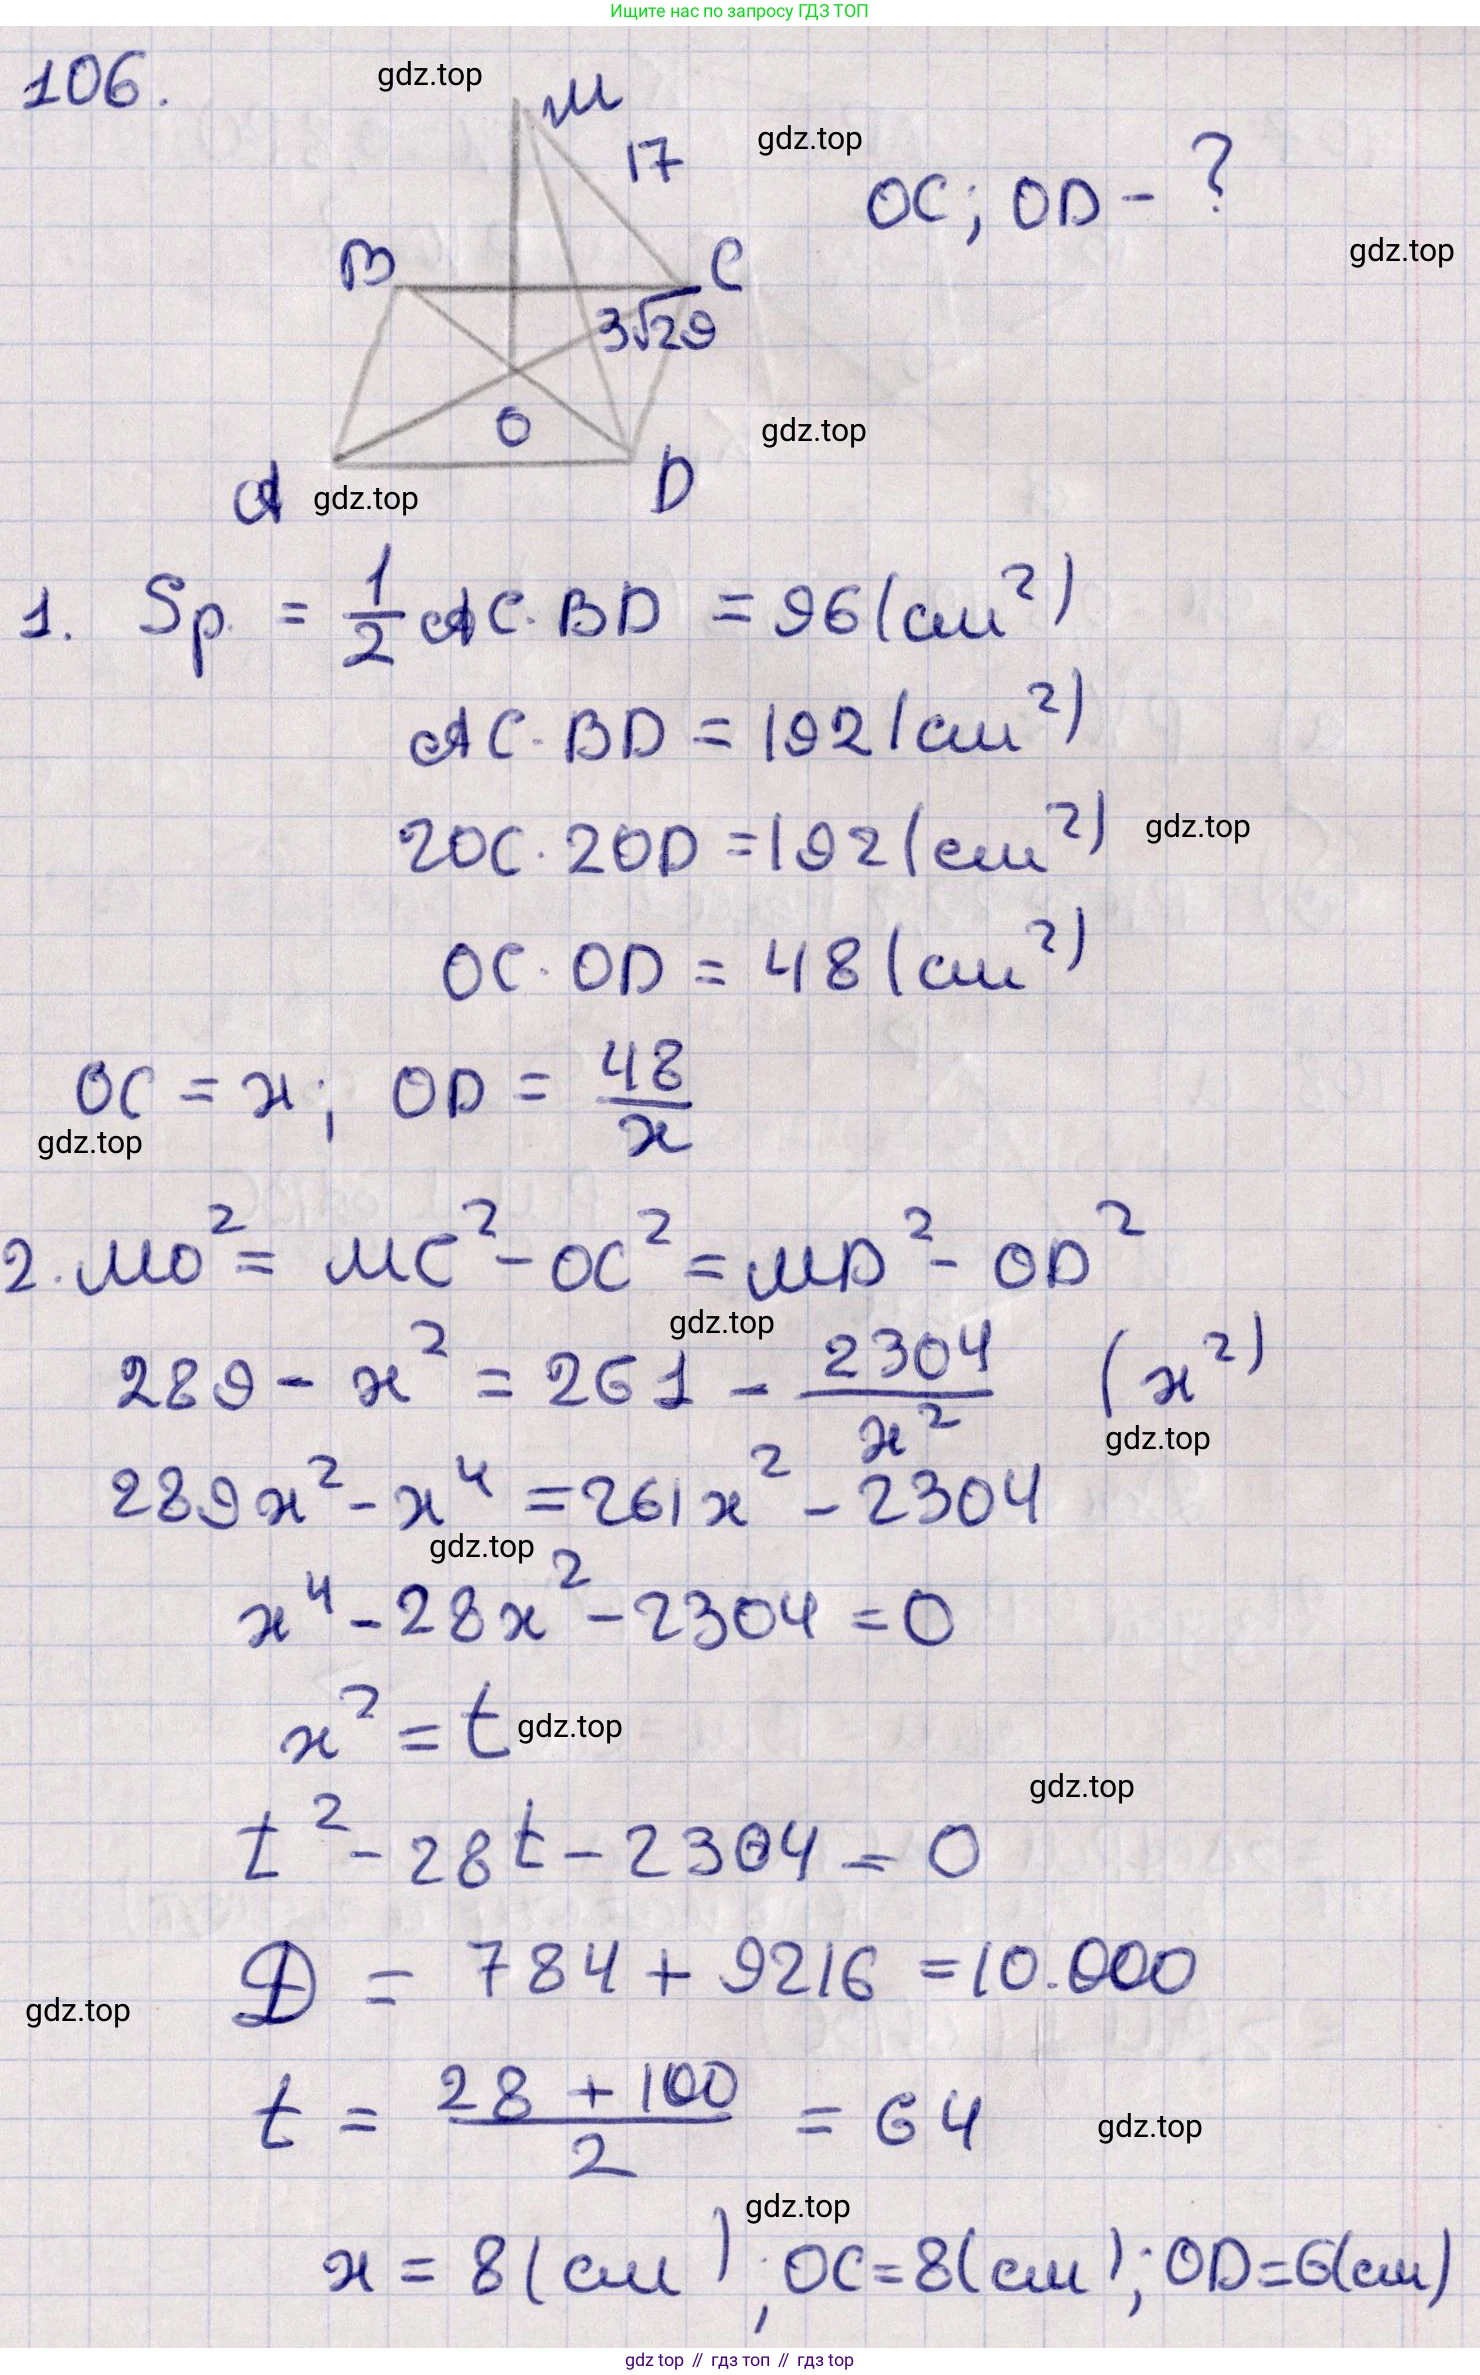 Ищите нас по запросу ГДЗ ТОП
106.
gdz.top
M
17
gdz.top
OC; OD - ?
gdz.top
B
C
3√29
O
gdz.top
A
gdz.top
D
1. Sр. = 1/2 AC · BD = 96 (см²)
AC · BD = 192 (см²)
2OC · 2OD = 192 (см²)
gdz.top
OC · OD = 48 (см²)
OC = x; OD = 48/x
gdz.top
2. MO² = MC² - OC² = MD² - OD²
gdz.top
289 - x² = 261 - 2304/x² (x²)
gdz.top
289x² - x⁴ = 261x² - 2304
gdz.top
x⁴ - 28x² - 2304 = 0
x² = t
gdz.top
gdz.top
t² - 28t - 2304 = 0
D = 784 + 9216 = 10.000
gdz.top
t = (28 + 100)/2 = 64
gdz.top
gdz.top
x = 8 (см); OC = 8 (см); OD = 6 (см)
gdz.top // гдз топ // гдз top